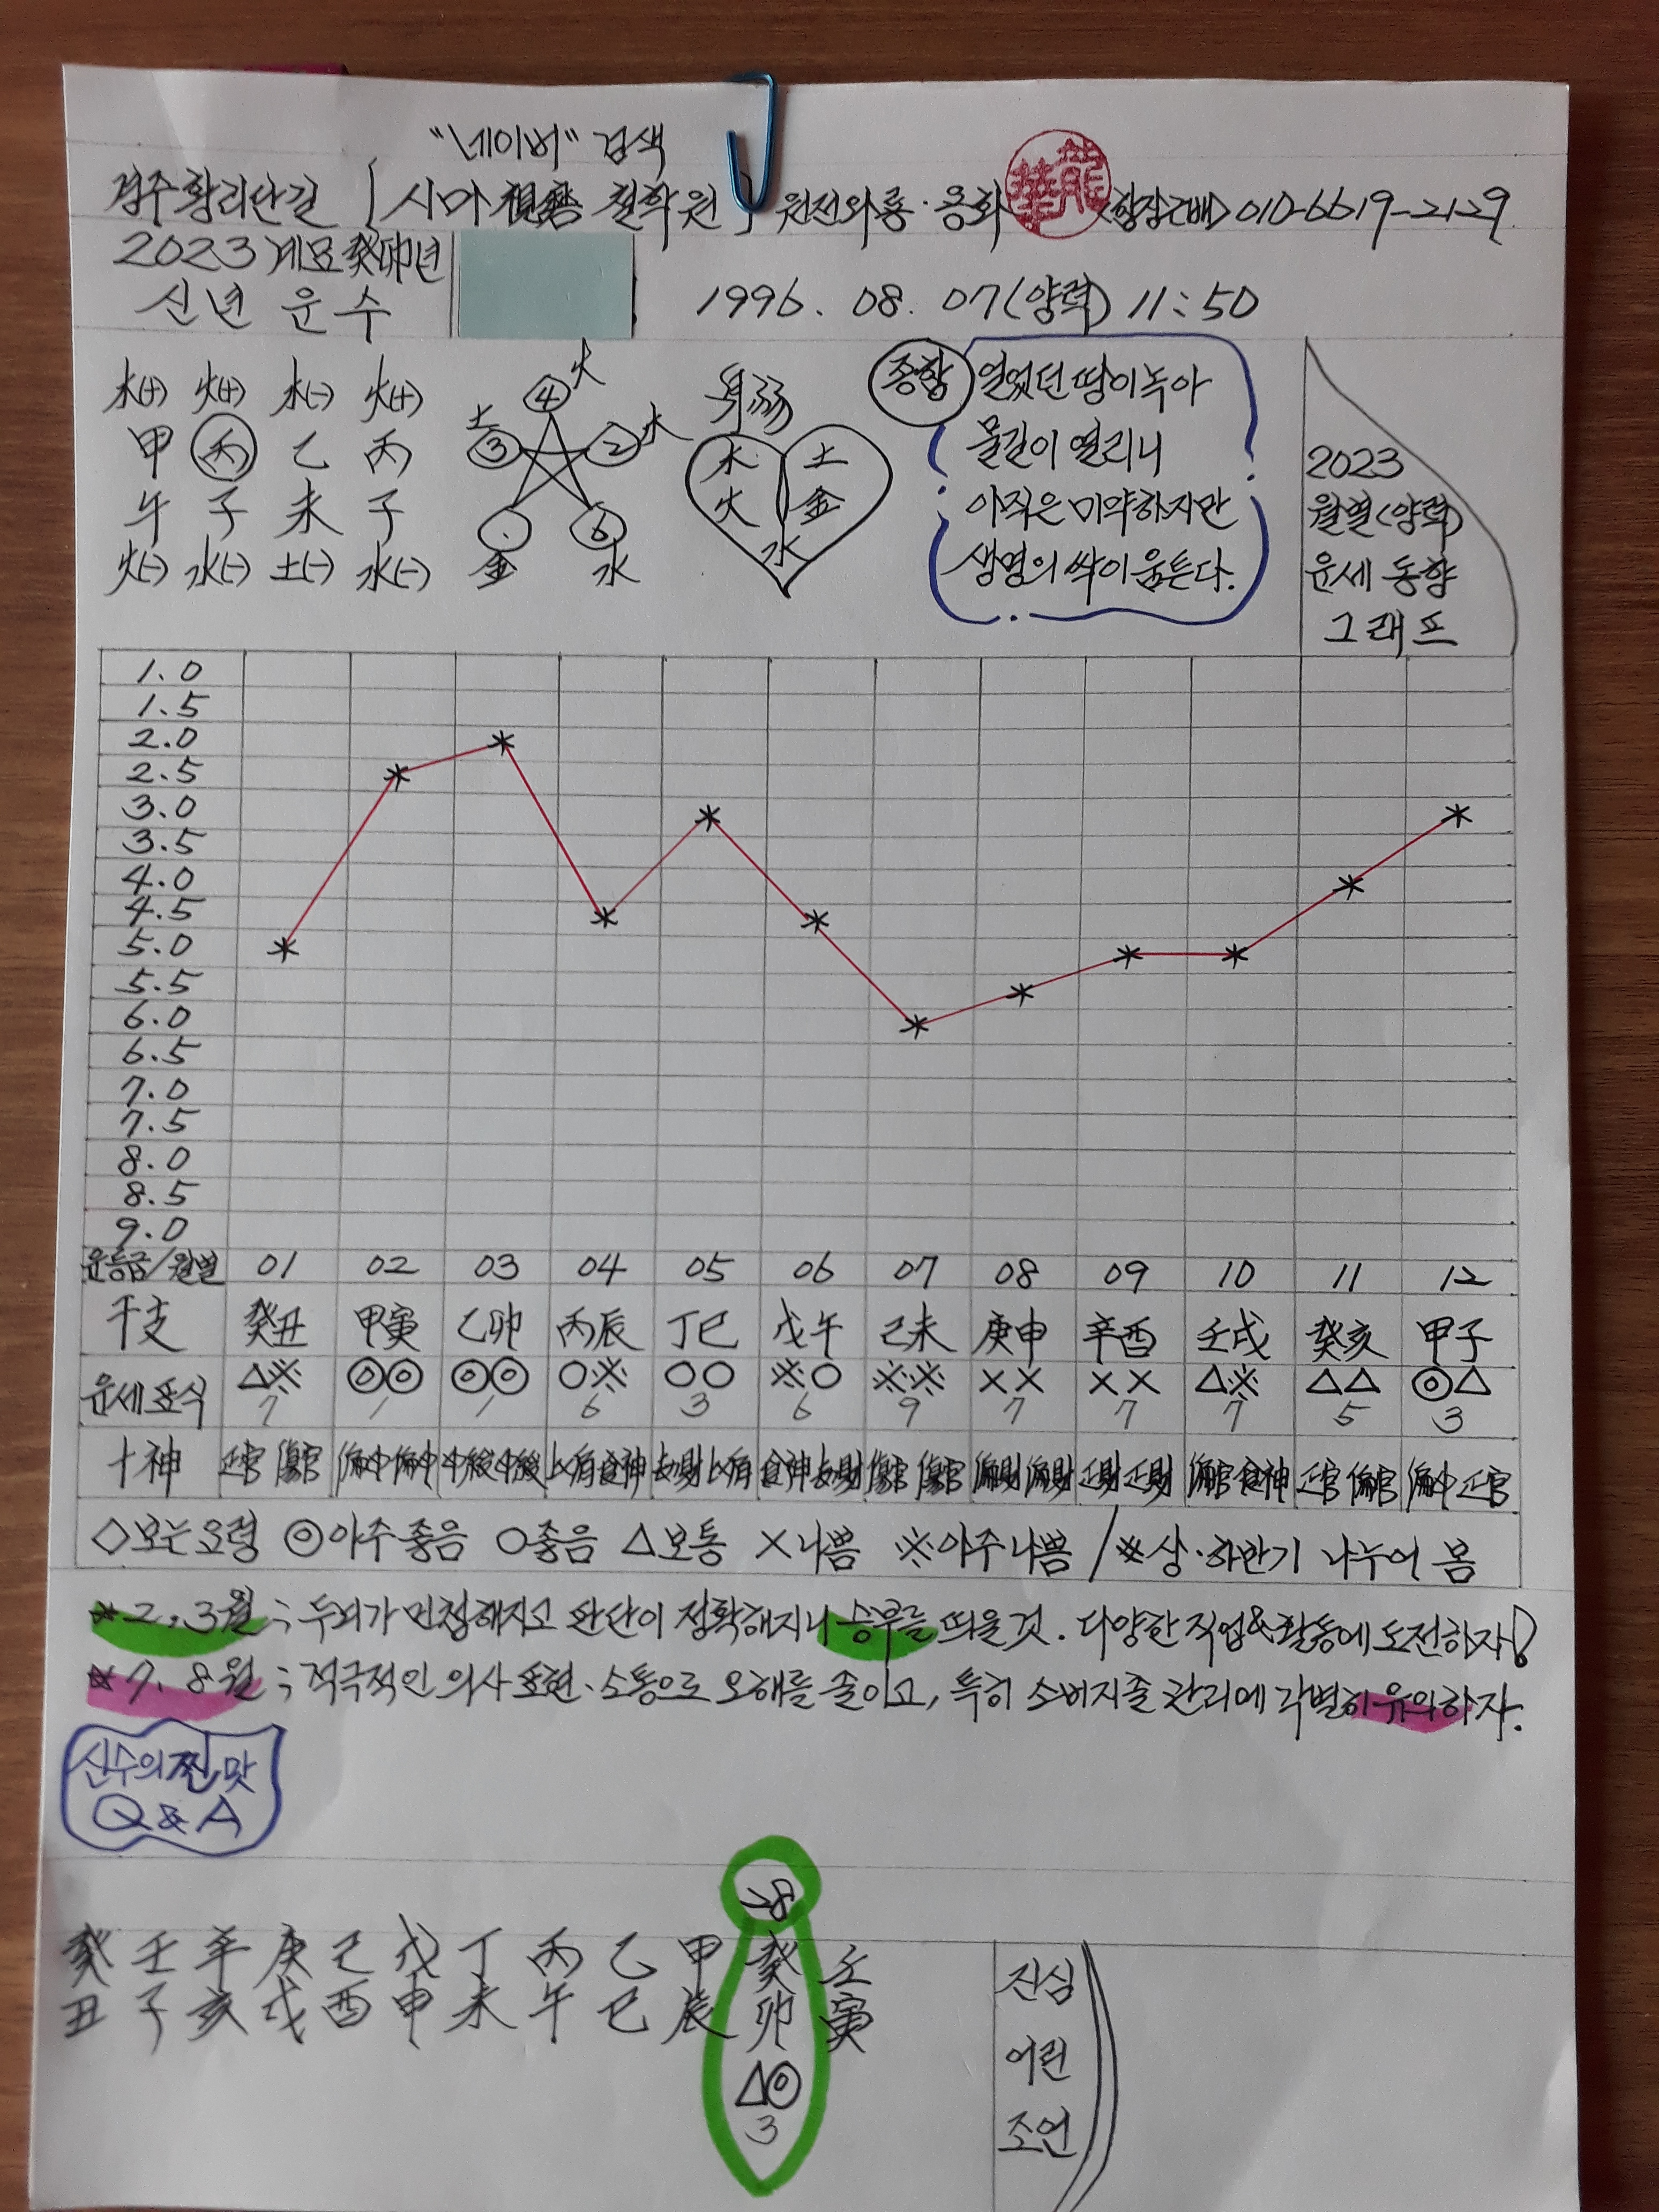 "네이버" 검색
경주황리단길 「시마 視磨 철학원」 원전와룡·용화 龍華 <항장군배> 010-6619-2129
2023 계묘癸卯년
신년 운수
1996. 08. 07(양력) 11:50
木(+) 火(+) 木(-) 火(+)
甲 丙 乙 丙
午 子 未 子
火(-) 水(-) 土(-) 水(-)
④ 火
土 ③ ② 木
金 ⑥ 水
身弱
木 土
火 金
水
종합 얼었던 땅이 녹아
물길이 열리니
아직은 미약하지만
생명의 싹이 움튼다.
2023
월별(양력)
운세 동향
그래프
1.0
1.5
2.0
2.5
3.0
3.5
4.0
4.5
5.0
5.5
6.0
6.5
7.0
7.5
8.0
8.5
9.0
운등급/월별 01 02 03 04 05 06 07 08 09 10 11 12
干支 癸丑 甲寅 乙卯 丙辰 丁巳 戊午 己未 庚申 辛酉 壬戌 癸亥 甲子
운세표식 △※ ◎◎ ◎◎ ○※ ○○ ※○ ※※ ×× ×× △※ △△ ◎△
7 1 1 6 3 6 9 7 7 7 5 3
十神 正官 傷官 偏印 偏印 印綬 印綬 比肩 食神 劫財 比肩 食神 劫財 傷官 傷官 偏財 偏財 正財 正財 偏官 食神 正官 偏官 偏印 正官
◇보는요령 ◎아주좋음 ○좋음 △보통 ×나쁨 ※아주나쁨 / ※상·하반기 나누어 봄
*2, 3월 ; 두뇌가 민첩해지고 판단이 정확해지니 승부를 띄울것. 다양한 직업&활동에 도전하자!
*7, 8월 ; 적극적인 의사표현·소통으로 오해를 줄이고, 특히 소비지출 관리에 각별히 유의하자.
신수의 찐맛
Q & A
28
癸 壬 辛 庚 己 戊 丁 丙 乙 甲 癸 壬
丑 子 亥 戌 酉 申 未 午 巳 辰 卯 寅
△◎
3
진심
어린
조언